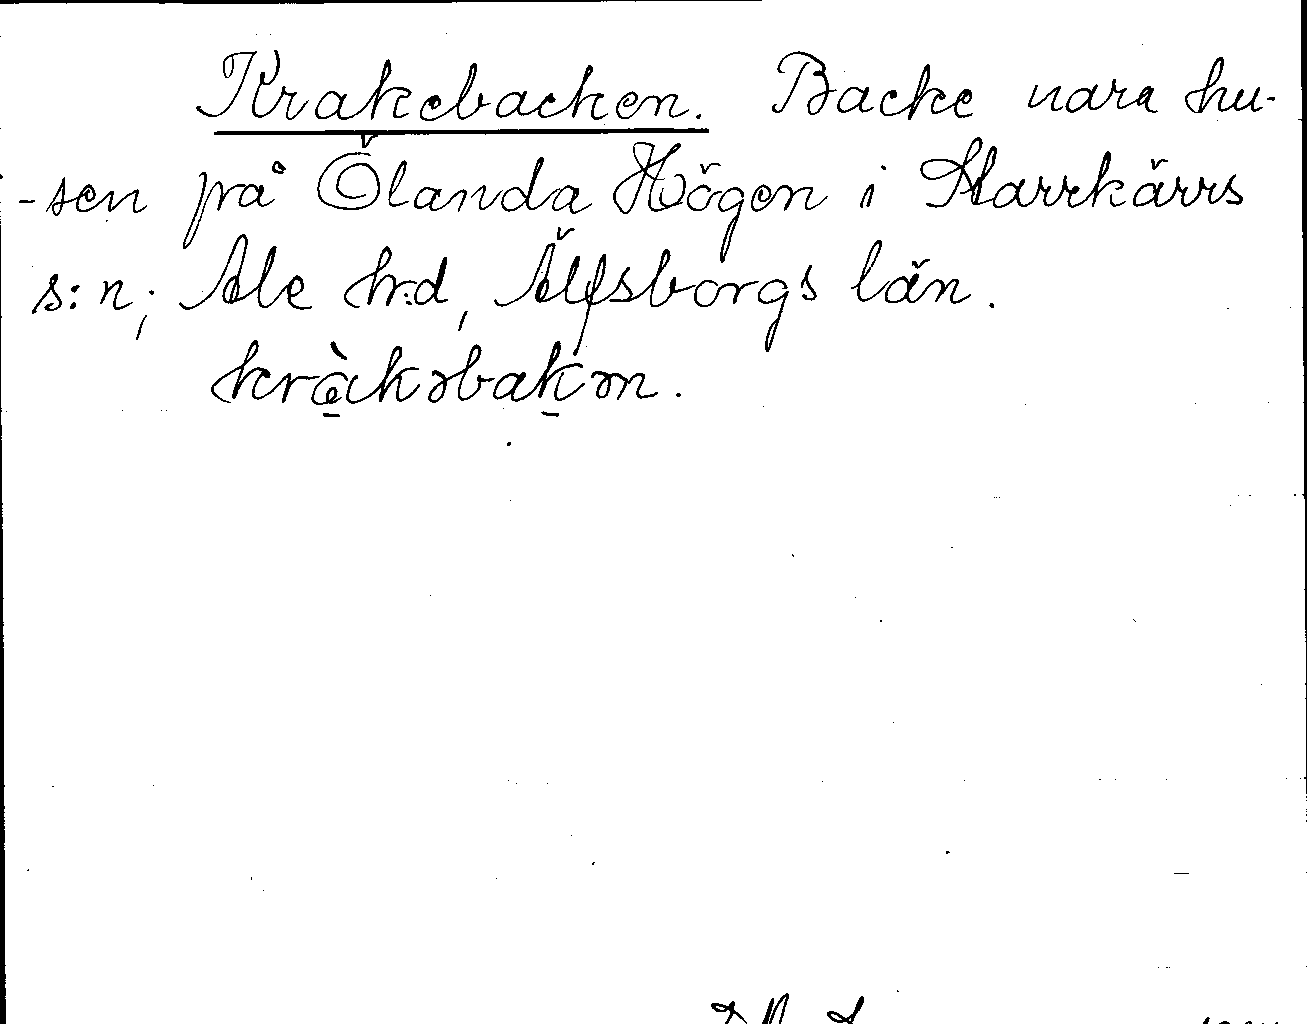 Krakebacken. Backe nara hu-
-sen på Ölanda Högen i Starrkärrs
s:n; Ale h:d, Älfsborgs län.